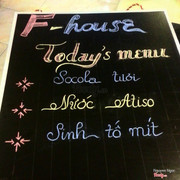 F-house
Today's MENU
Socola tươi
Nước Atiso
Sinh tố mít